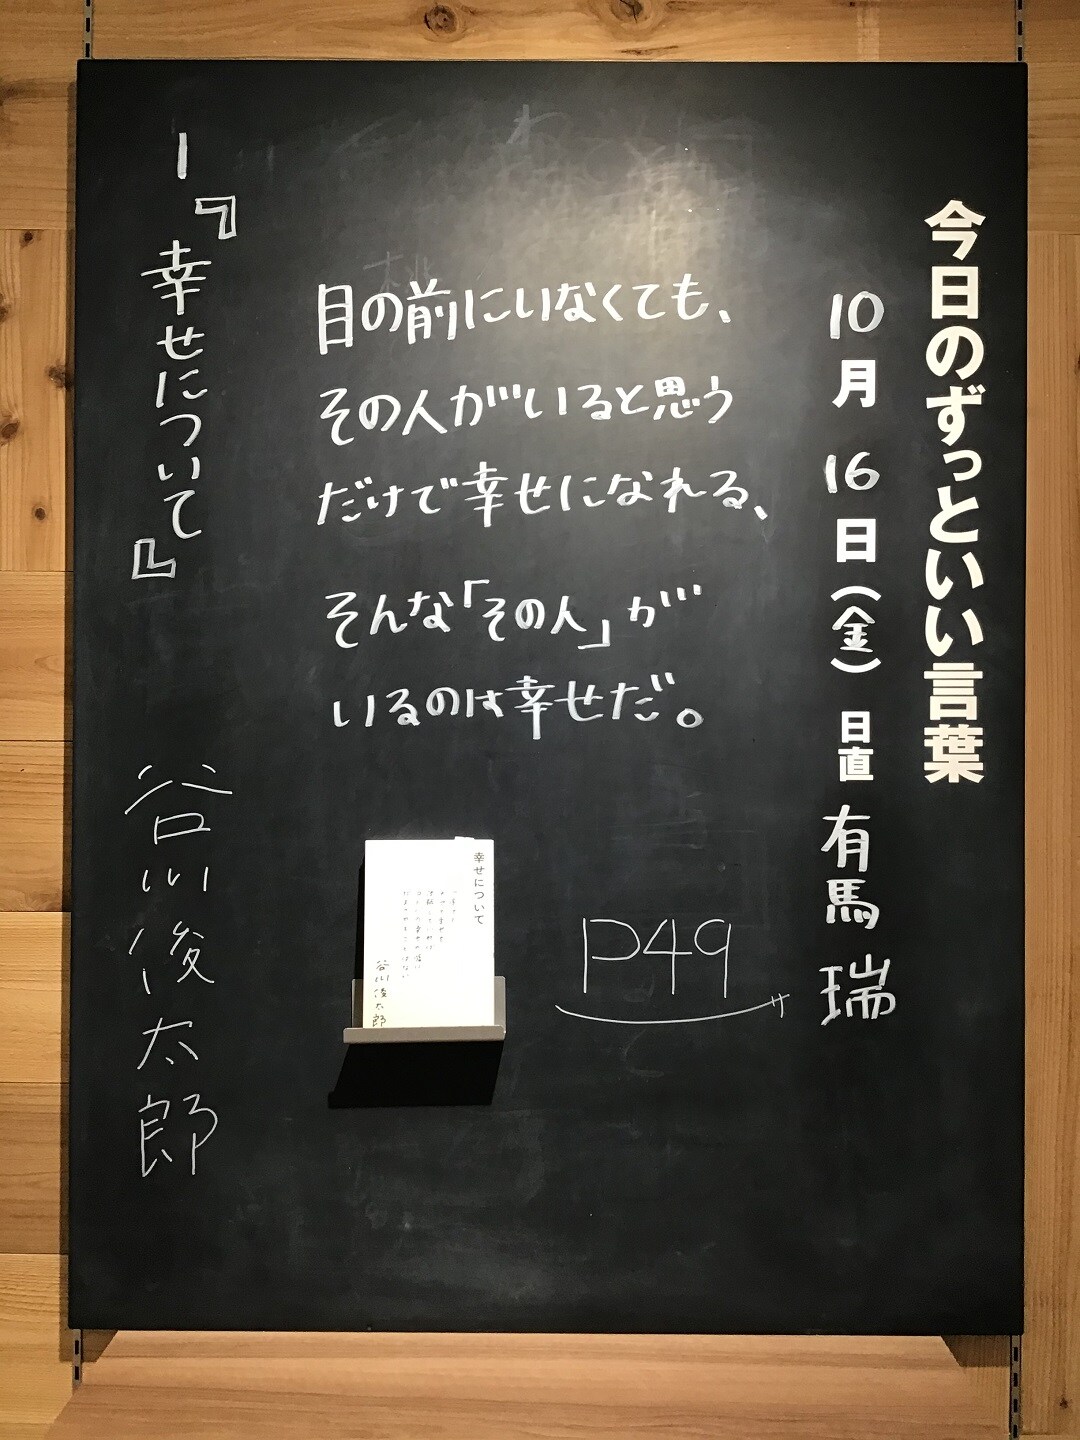 今日のずっといい言葉
10月16日(金) 日直 有馬 瑞
目の前にいなくても、
その人がいると思う
だけで幸せになれる、
そんな「その人」が
いるのは幸せだ。
P49
ー『幸せについて』 谷川俊太郎
幸せについて
谷川俊太郎